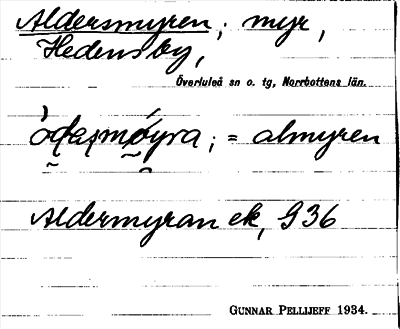 Aldersmyren; myr,
Hedensby,
Överluleå sn o. tg, Norrbottens län.
; = almyren
Aldermyran ek, 936
GUNNAR PELLIJEFF 1934.